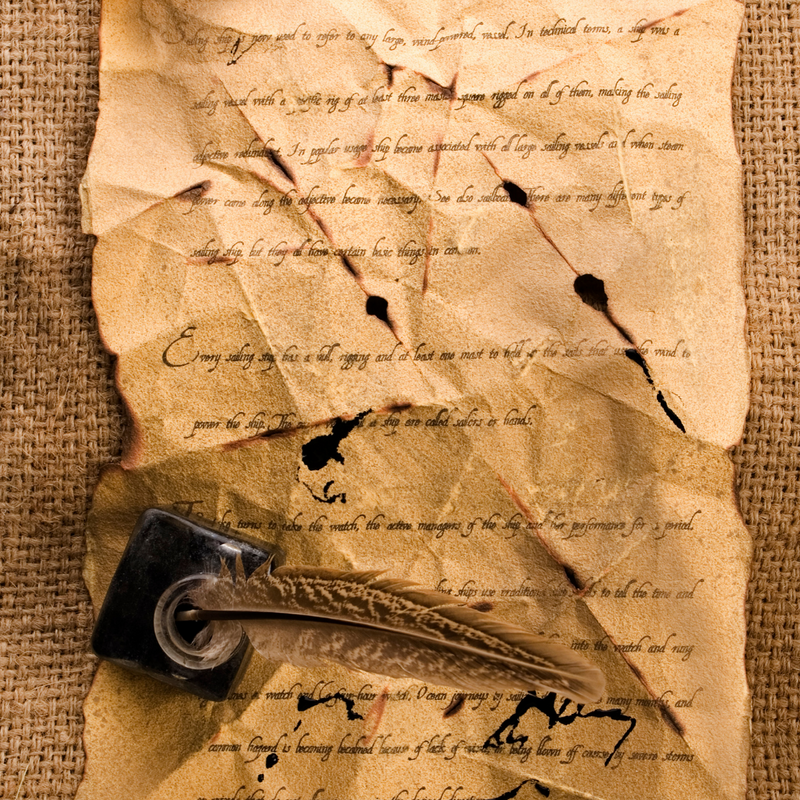 Sailing ship is now used to refer to any large, wind-powered, vessel. In technical terms, a ship was a
sailing vessel with a specific rig of at least three masts, square rigged on all of them, making the sailing
adjective redundant. In popular usage ship became associated with all large sailing vessels and when steam
power came along the adjective became necessary. See also sailboat. There are many different types of
sailing ship, but they all have certain basic things in common.
Every sailing ship has a hull, rigging and at least one mast to hold up the sails that use the wind to
power the ship. The a ship are called sailors or hands.
take turns to take the watch, the active managers of the ship and her performance for a period.
ships use traditional to tell the time and
into the watch and ring
watch. Ocean journeys by many months, and
common hazard is becoming becalmed because of lack of wind, or being blown off course by severe storms